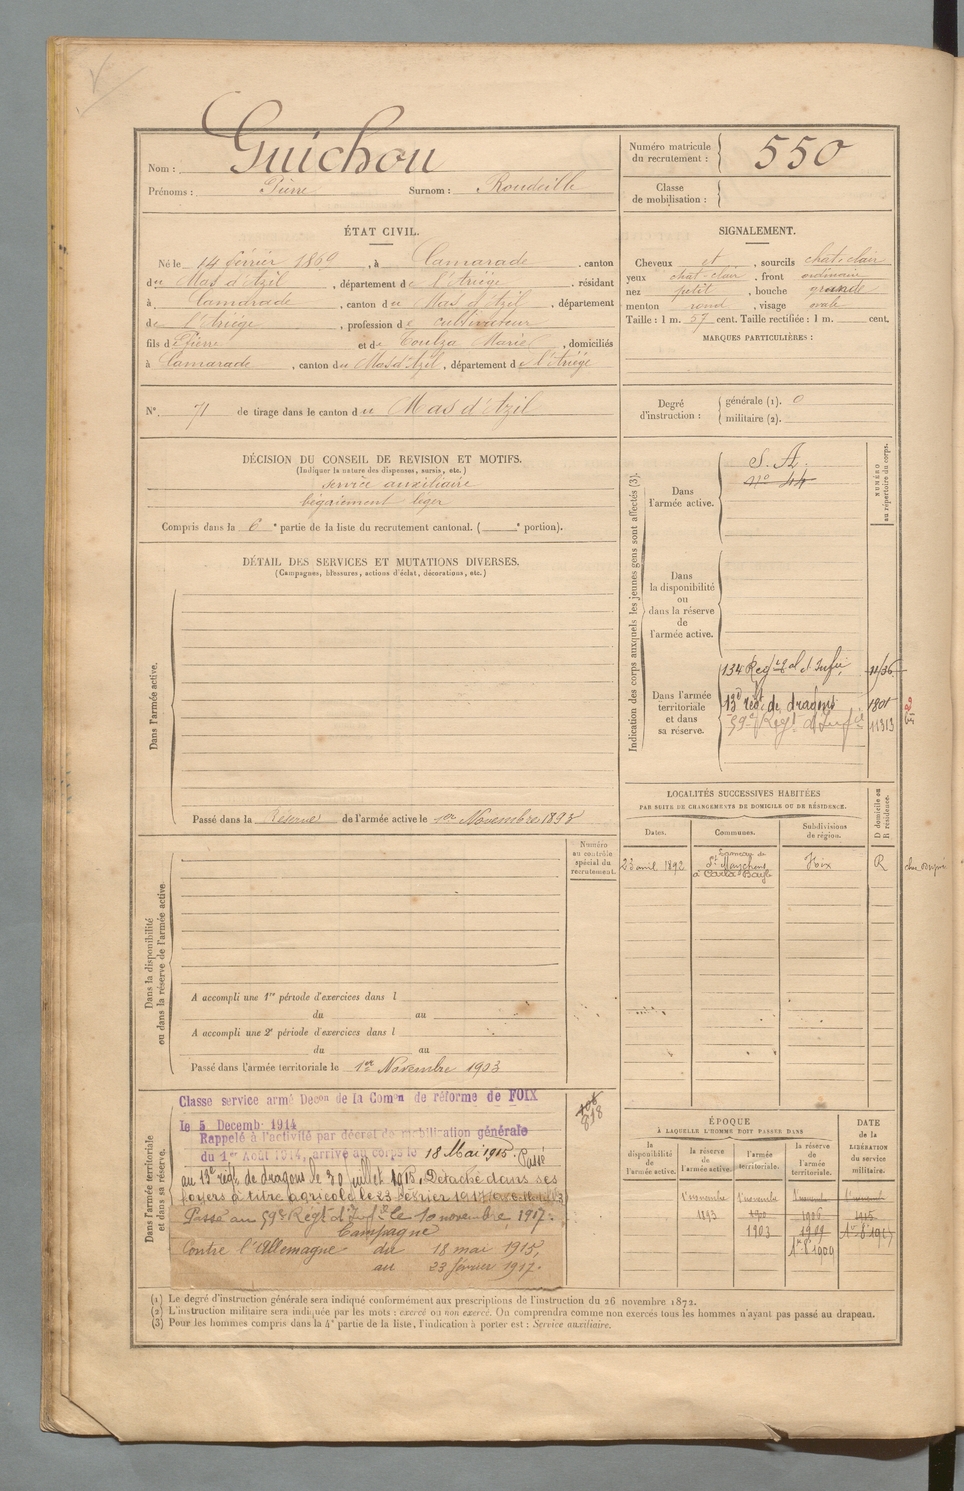 Nom : Guichou
Prénoms : Pierre Surnom : Roudeille
Numéro matricule du recrutement : 550
Classe de mobilisation :
ÉTAT CIVIL.
Né le 14 février 1869, à Camarade, canton
du Mas d'Azil, département de l'Ariége, résidant
à Camarade, canton du Mas d'Azil, département
de l'Ariége, profession de cultivateur
fils de Pierre et de Coulza Marie, domiciliés
à Camarade, canton du Mas d'Azil, département de l'Ariége
N° 71 de tirage dans le canton du Mas d'Azil
SIGNALEMENT.
Cheveux et, sourcils chat-clair
yeux chat-clair, front ordinaire
nez petit, bouche grande
menton rond, visage ovale
Taille : 1 m. 57 cent. Taille rectifiée : 1 m. cent.
MARQUES PARTICULIÈRES :
Degré d'instruction : générale (1). 0
militaire (2).
DÉCISION DU CONSEIL DE REVISION ET MOTIFS.
(Indiquer la nature des dispenses, sursis, etc.)
service auxiliaire
bégaiement léger
Compris dans la 6e partie de la liste du recrutement cantonal. ( e portion).
DÉTAIL DES SERVICES ET MUTATIONS DIVERSES.
(Campagnes, blessures, actions d'éclat, décorations, etc.)
Dans l'armée active.
Passé dans la réserve de l'armée active le 1er Novembre 1893
Indication des corps auxquels les jeunes gens sont affectés (3).
NUMÉRO au répertoire du corps.
Dans l'armée active.
S. A.
n° 44
Dans la disponibilité ou dans la réserve de l'armée active.
Dans l'armée territoriale et dans sa réserve.
134 Regt d'Infie 11/36
13e régt de dragons 1801
59e Régt d'Infie 11313
LOCALITÉS SUCCESSIVES HABITÉES
PAR SUITE DE CHANGEMENTS DE DOMICILE OU DE RÉSIDENCE.
Dates. Communes. Subdivisions de région. D domicile ou R résidence.
23 avril 1892 à Carla Bayle Foix R
Dans la disponibilité ou dans la réserve de l'armée active
Numéro au contrôle spécial du recrutement.
A accompli une 1re période d'exercices dans l
du au
A accompli une 2e période d'exercices dans l
du au
Passé dans l'armée territoriale le 1er Novembre 1903
Dans l'armée territoriale et dans sa réserve.
Classe service armé Decon de la Comon de réforme de FOIX
le 5 Decembr 1914
Rappelé à l'activité par décret de mobilisation générale
du 1er Août 1914, arrivé au corps le 18 Mai 1915. Passé
au 13e régt de dragons le 30 juillet 1915, Détaché dans ses
foyers à titre agricole le 23 février 1917
Passé au 59e Regt d'Infie le 10 novembre 1917.
Campagne
Contre l'Allemagne du 18 mai 1915,
au 23 février 1917.
818
ÉPOQUE
A LAQUELLE L'HOMME DOIT PASSER DANS
la disponibilité de l'armée active. la réserve de l'armée active. l'armée territoriale. la réserve de l'armée territoriale.
DATE de la LIBÉRATION du service militaire.
1er novembre 1er novembre 1er novembre 1er novembre
1893 1900 1906 1915
1903 1909
(1) Le degré d'instruction générale sera indiqué conformément aux prescriptions de l'instruction du 26 novembre 1872.
(2) L'instruction militaire sera indiquée par les mots : exercé ou non exercé. On comprendra comme non exercés tous les hommes n'ayant pas passé au drapeau.
(3) Pour les hommes compris dans la 4e partie de la liste, l'indication à porter est : Service auxiliaire.